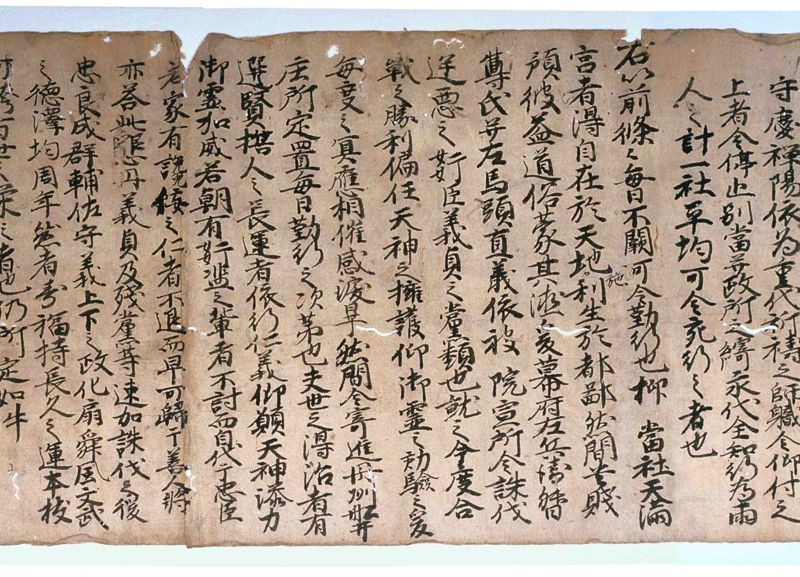 守慶禅陽依為重代所祷之師職令仰付之
上者令停止別當并政所之綺永代全知行為両
人之計一社平均可令充行之者也
右以前條々毎日不闕可令勤行也抑 當社天満
宮者得自在於天地利生施於都鄙然間貴賤
預彼益道俗蒙其 爰幕府左兵衛督
尊氏并左馬頭直義依被 院宣所令誅伐
逆悪之奸臣義貞之黨類也就之今度合
戦之勝利偏任天神之擁護仰御霊之効驗之爰
毎度之冥應相催感涙早 然間令寄進
庄所定置毎日勤行之次第也夫世之得治者有
選賢撰人之長運者依行仁義仰願天神添力
御霊加威若朝有奸濫之輩者不討而自伐于忠臣
若家有讒 之仁者不退而早可歸于善人将
亦答此懇丹義貞及残黨等速加誅伐之後
忠良成群輔佐守義上下之政化扇舜風文武
之徳澤均周年然者 福持長久之運本枝
百世 栄之者也仍所定如件